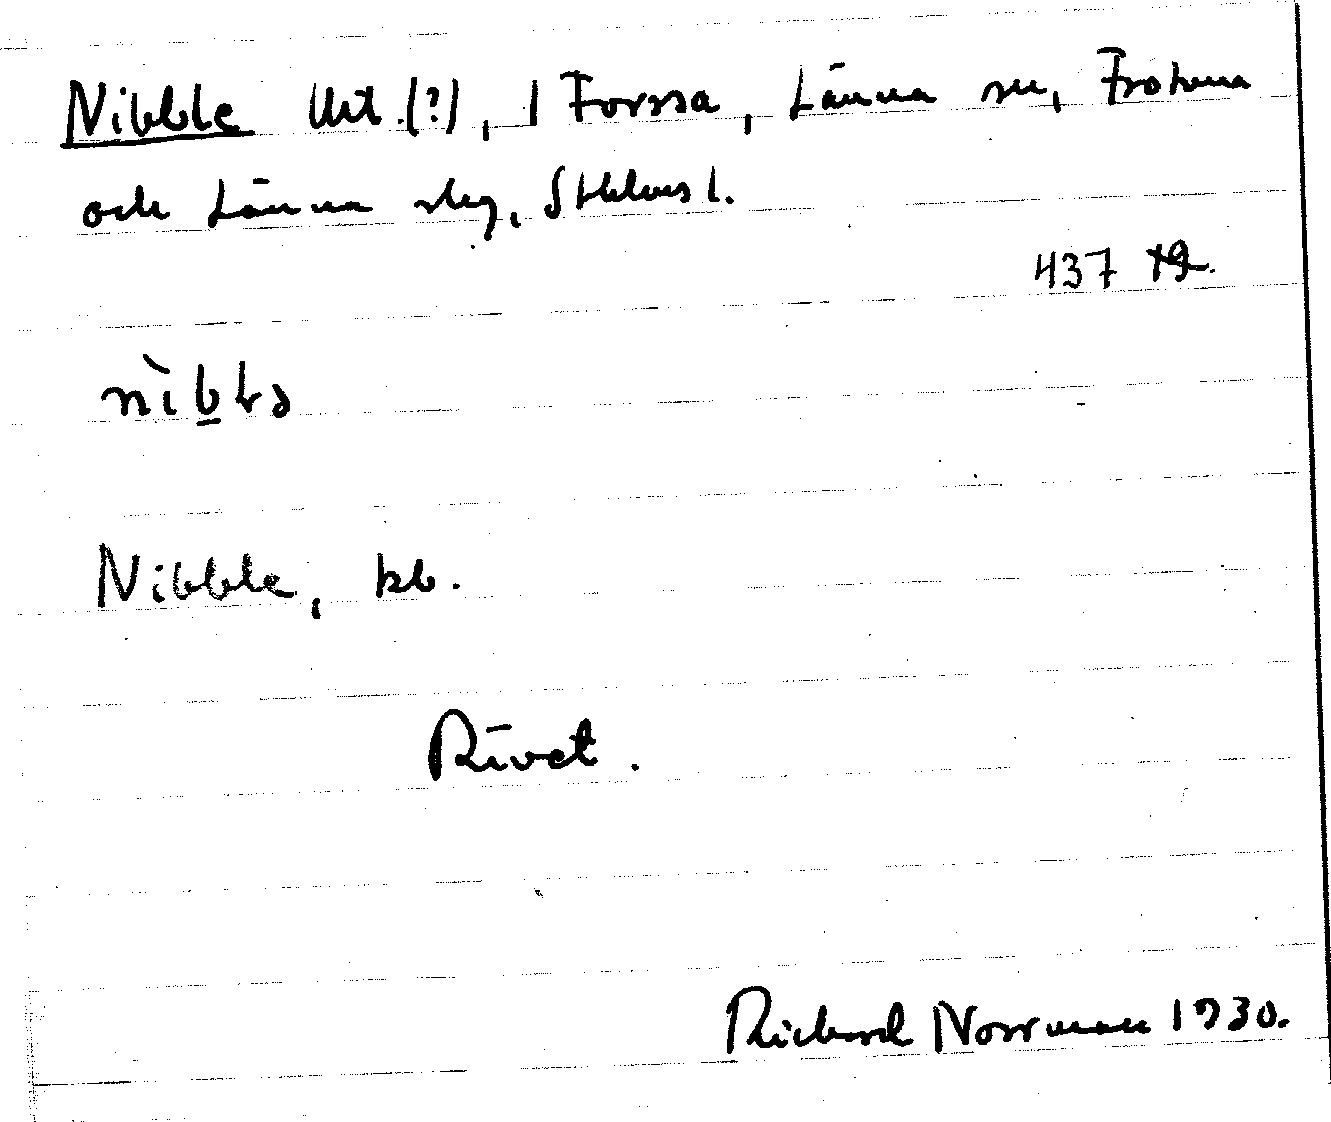 Nibble lht.(?), 1 Forssa, Länna sn, Frötuna
och Länna slg, Sthlms l.
437
Nibble, kb.
Rivet.
Richard Norrman 1930.